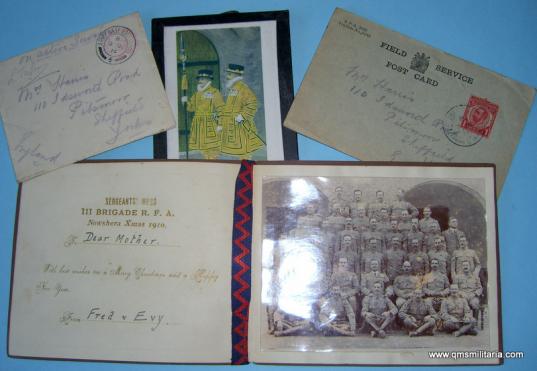 On Active Service
Mrs Harris
110 Idsworth Road
Pitsmoor
Sheffield
Yorks
England
FIELD SERVICE
POST CARD
Mrs Harris
110 Idsworth Road
Pitsmoor
Sheffield
SERGEANTS' MESS
III BRIGADE R. F. A.
Nowshera Xmas 1910.
To Dear Mother.
With best wishes for a Merry Christmas and a Happy
New Year.
From Fred & Evy.
www.qmsmilitaria.com